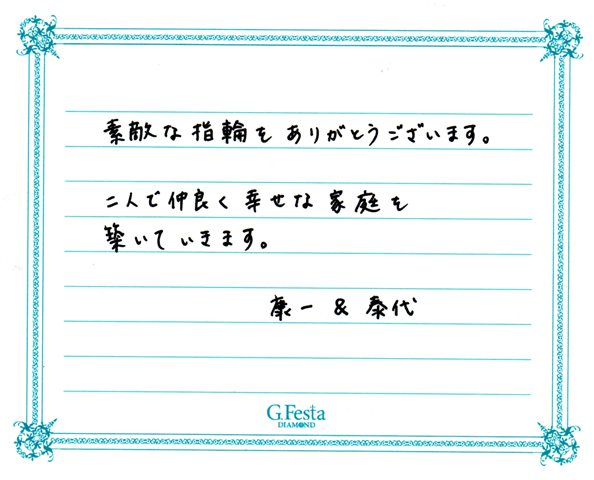 素敵な指輪をありがとうございます。
二人で仲良く幸せな家庭を
築いていきます。
康一 & 泰代
G.Festa
DIAMOND